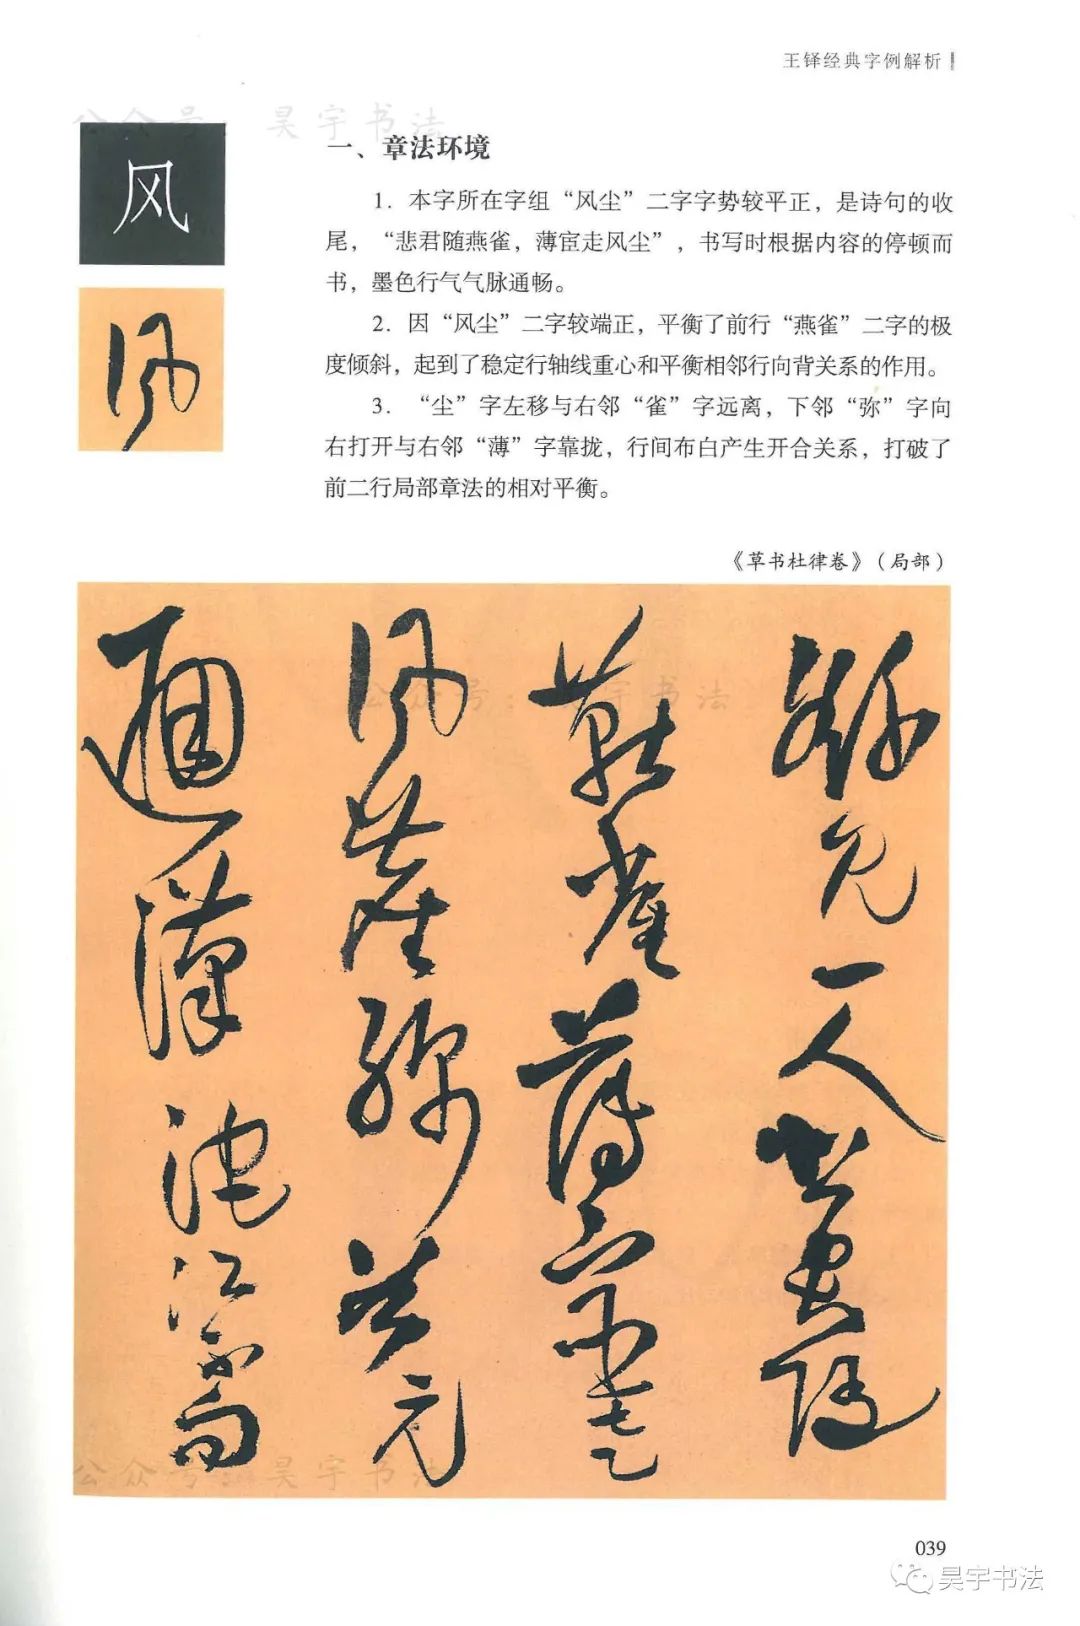 王铎经典字例解析
公众号：昊宇书法
风
風
一、章法环境
1. 本字所在字组“风尘”二字字势较平正，是诗句的收
尾，“悲君随燕雀，薄宦走风尘”，书写时根据内容的停顿而
书，墨色行气气脉通畅。
2. 因“风尘”二字较端正，平衡了前行“燕雀”二字的极
度倾斜，起到了稳定行轴线重心和平衡相邻行向背关系的作用。
3. “尘”字左移与右邻“雀”字远离，下邻“弥”字向
右打开与右邻“薄”字靠拢，行间布白产生开合关系，打破了
前二行局部章法的相对平衡。
《草书杜律卷》（局部）
見一人悲君隨
燕雀薄宦走
風塵綿谷元
通漢沱江不向
公众号：昊宇书法
公众号：昊宇书法
039
昊宇书法